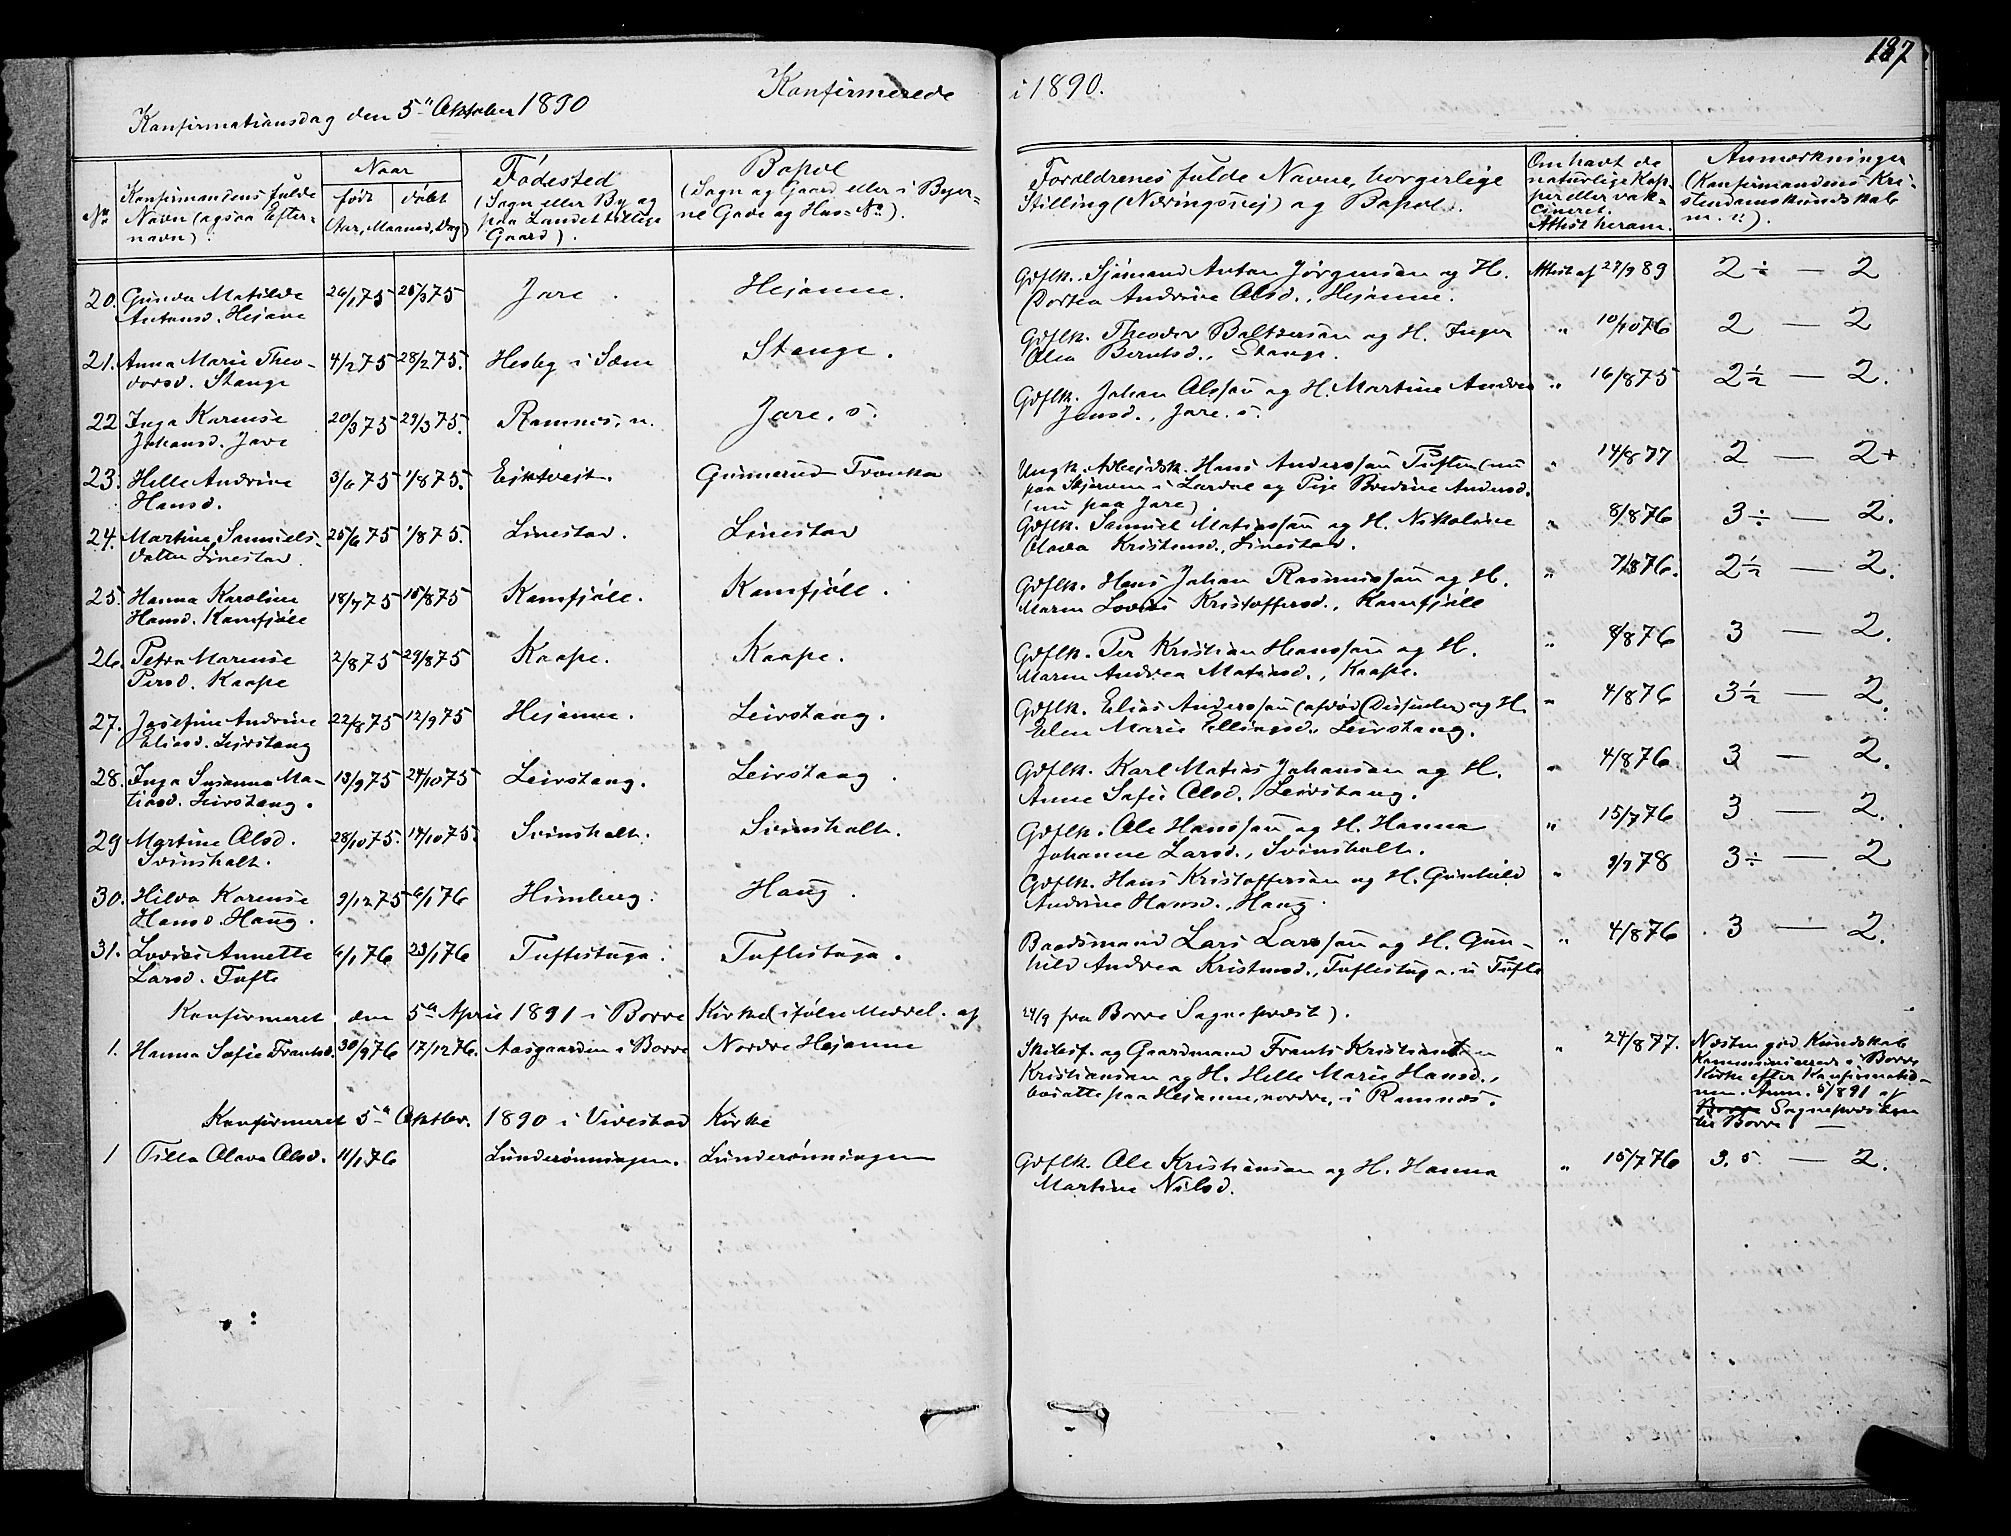 187
Konfirmerede i 1890.
Konfirmationsdag den 5te Oktober 1890
No
Konfirmandens fulde
Navn (ogsaa Efter=
navn).
Naar
født
døbt
Aar, Maaned, Dag)
Fødested
(Sogn eller By og
paa Landet tillige
Gaard).
Bopæl
(Sogn og Gaard eller i Byer-
ne Gade og Hus=No).
Forældrenes fulde Navne, borgerlige
Stilling (Næringsvej) og Bopæl.
Om havt de
naturlige Kop-
per eller vak-
cineret.
Attest herom.
Anmærkninger
(Konfirmandens Kri-
stendomskundskab
m. v.).
20. Gunda Matilde 26/1 75 28/3 75 Jare. Hejanne. Gdflk. Sjømand Anton Jørgensen og H. Attest af 27/9 89 2÷ — 2
Antonsd. Hejane Dortea Andrine Olsd., Hejanne.
21. Anna Marie Theo- 4/2 75 28/2 75. Hesby i Sæm Stange. Gdflk. Theodor Baltsersen og H. Inger " 10/10 76 2 — 2
dorsd. Stange Olea Berntsd., Stange.
22 Inga Karense 20/3 75 29/3 75. Ramnes, n. Jare, s. Gdflk. Johan Olsson og H. Martine Andrea " 16/8 75 2½ — 2.
Johansd. Jare Jensd., Jare, s.
23. Helle Andrine 3/6 75 1/8 75. Ejktveit. Gunnerud Tronka Ungk. Arbejdsk. Hans Anderssøn Tufte (nu " 14/8 77 2 — 2+
Hansd. paa Skjerven i Lardal og Pige Bredine Andersd.
(nu paa Jare)
24. Martine Samuels- 25/6 75 1/8 75. Linestad. Linestad Gdflk. Samuel Matiassøn og H. Nikoline " 8/8 76 3÷ — 2.
datter Linestad. Olava Kristensd., Linestad.
25. Hanna Karoline 18/7 75 15/8 75 Kamfjøll. Kamfjøll. Gdflk. Hans Johan Rasmussøn og H. " 7/8 76. 2½ — 2.
Hansd. Kamfjøll Maren Lovise Kristoffersd., Kamfjøll
26. Petra Marense 2/8 75 29/8 75 Kaape. Kaape. Gdflk. Per Kristian Hanssøn og H. " 8/8 76 3 — 2.
Persd. Kaape Maren Andrea Matiasd., Kaape.
27. Josefine Andrine 22/8 75 12/9 75 Hejanne. Leirstang. Gdflk. Elias Anderssøn (afdød (Dissenter) og H. " 4/8 76 3½ — 2.
Eliasd. Leirstang Elen Marie Ellingsd., Leirstang.
28. Inga Susanna Ma- 13/9 75 24/10 75 Leirstang. Leirstang. Gdflk. Karl Matias Johansen og H. " 4/8 76 3 — 2.
tiasd. Leirstang. Anne Sofie Olsd., Leirstang.
29 Martine Olsd. 28/10 75. 14/10 75. Svinsholt. Svinsholt. Gdflk. Ole Hanssøn og H. Hanna " 15/7 76 3 — 2.
Svinsholt. Johanne Larsd., Svinsholt.
30. Hilda Karense 9/12 75 6/1 76 Himberg. Haug. Gdflk. Hans Kristoffersen og H. Gunhild " 9/7 78 3÷ — 2
Hansd. Haug. Andrine Hansd., Haug.
31. Lovise Annette 6/1 76 23/1 76 Tuftestuga. Tuftestuga. Baadsmand Lars Larssøn og H. Gun- " 4/8 76 3 — 2.
Larsd. Tufte hild Andrea Kristensd., Tuftestuga u Tufte
Konfirmeret den 5te April 1891 i Borre Kirke (ifølge Meddel. af 24/9 fra Borre Sogneprest).
1. Hanna Sofie Frantsd. 30/9 76 17/12 76. Aasgaarden i Borre Nordre Hejanne Skibsf. og Gaardmand Frants Kristian " 24/8 77. Næsten god Kundskab
Kristiansen og H. Helle Marie Hansd., Kommunicerede i Borre
bosatte paa Hejanne, nordre, i Ramnes. Kirke efter Konfirmatio-
nen. Anm. 5/8 91 af
Borre Sognepresten
til Borre —
Konfirmeret 5te Oktbr. 1890 i Vivestad Kirke
1 Tilla Olava Olsd. 11/1 76 Lunderønningen. Lunderønningen Gdflk. Ole Kristiansen og H. Hanna " 15/7 76 3.5. — 2.
Martine Nilsd.